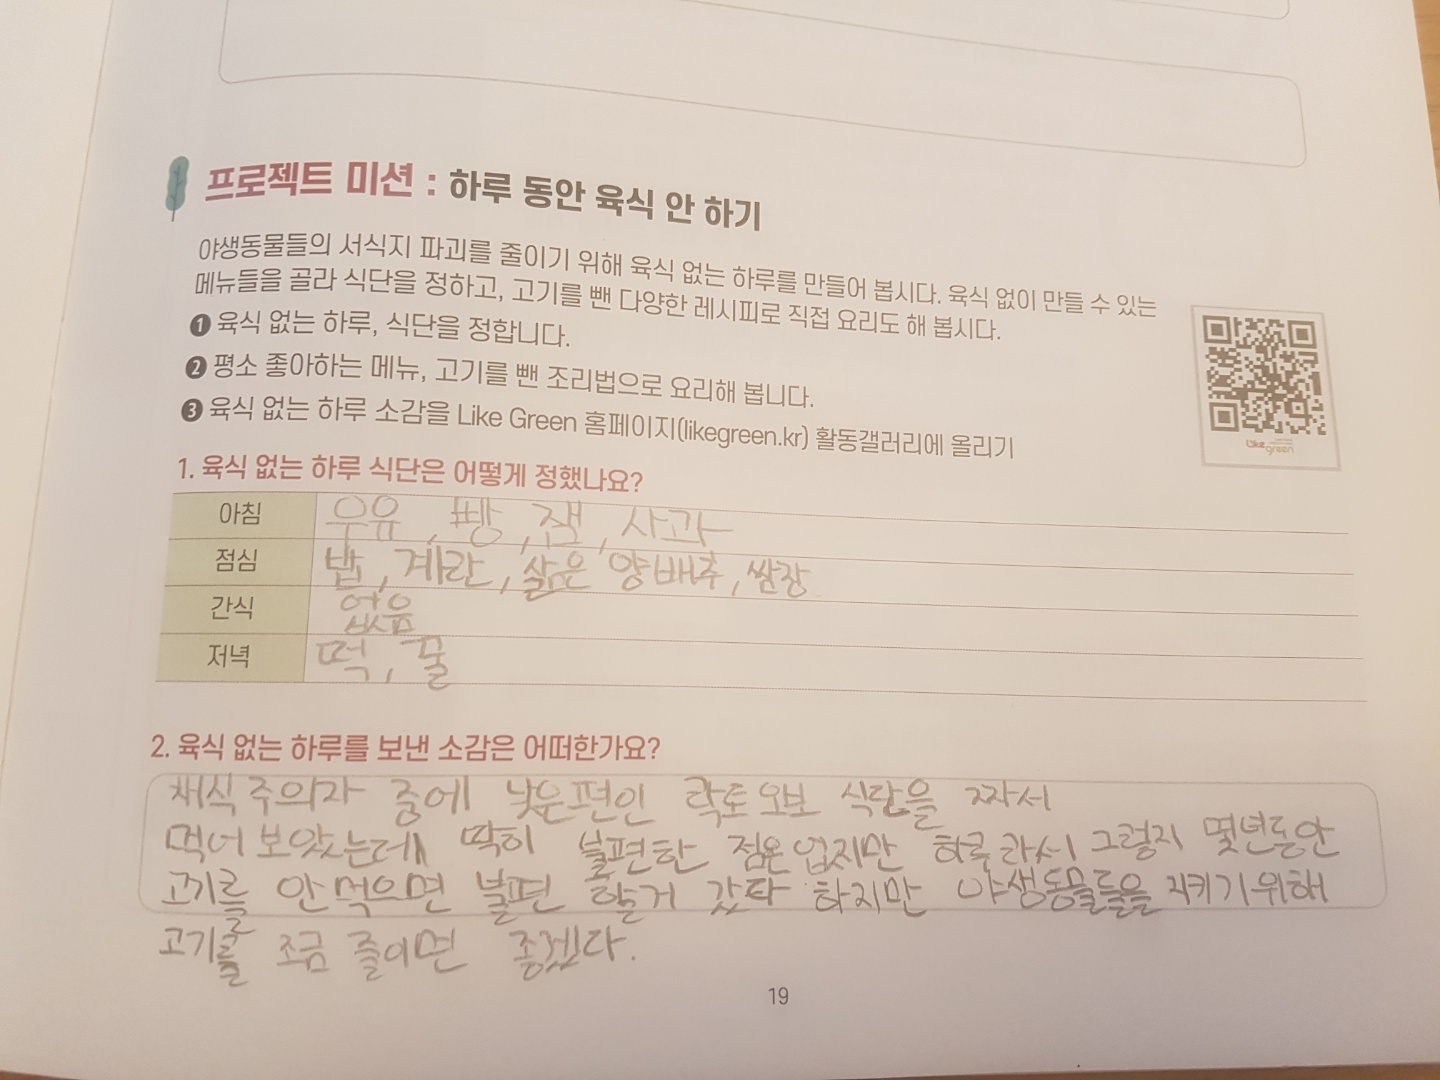 프로젝트 미션 : 하루 동안 육식 안 하기
야생동물들의 서식지 파괴를 줄이기 위해 육식 없는 하루를 만들어 봅시다. 육식 없이 만들 수 있는
메뉴들을 골라 식단을 정하고, 고기를 뺀 다양한 레시피로 직접 요리도 해 봅시다.
❶ 육식 없는 하루, 식단을 정합니다.
❷ 평소 좋아하는 메뉴, 고기를 뺀 조리법으로 요리해 봅니다.
❸ 육식 없는 하루 소감을 Like Green 홈페이지(likegreen.kr) 활동갤러리에 올리기
Like green
1. 육식 없는 하루 식단은 어떻게 정했나요?
아침 우유, 빵, 잼, 사과
점심 밥, 계란, 삶은 양배추, 쌈장
간식 없음
저녁 떡, 꿀
2. 육식 없는 하루를 보낸 소감은 어떠한가요?
채식주의자 중에 낮은편인 락토오보 식단을 짜서
먹어 보았는데 딱히 불편한 점은 없지만 하루라서 그렇지 몇년동안
고기를 안먹으면 불편 할거 같다 하지만 야생동물들을 지키기위해
고기를 조금 줄이면 좋겠다.
19